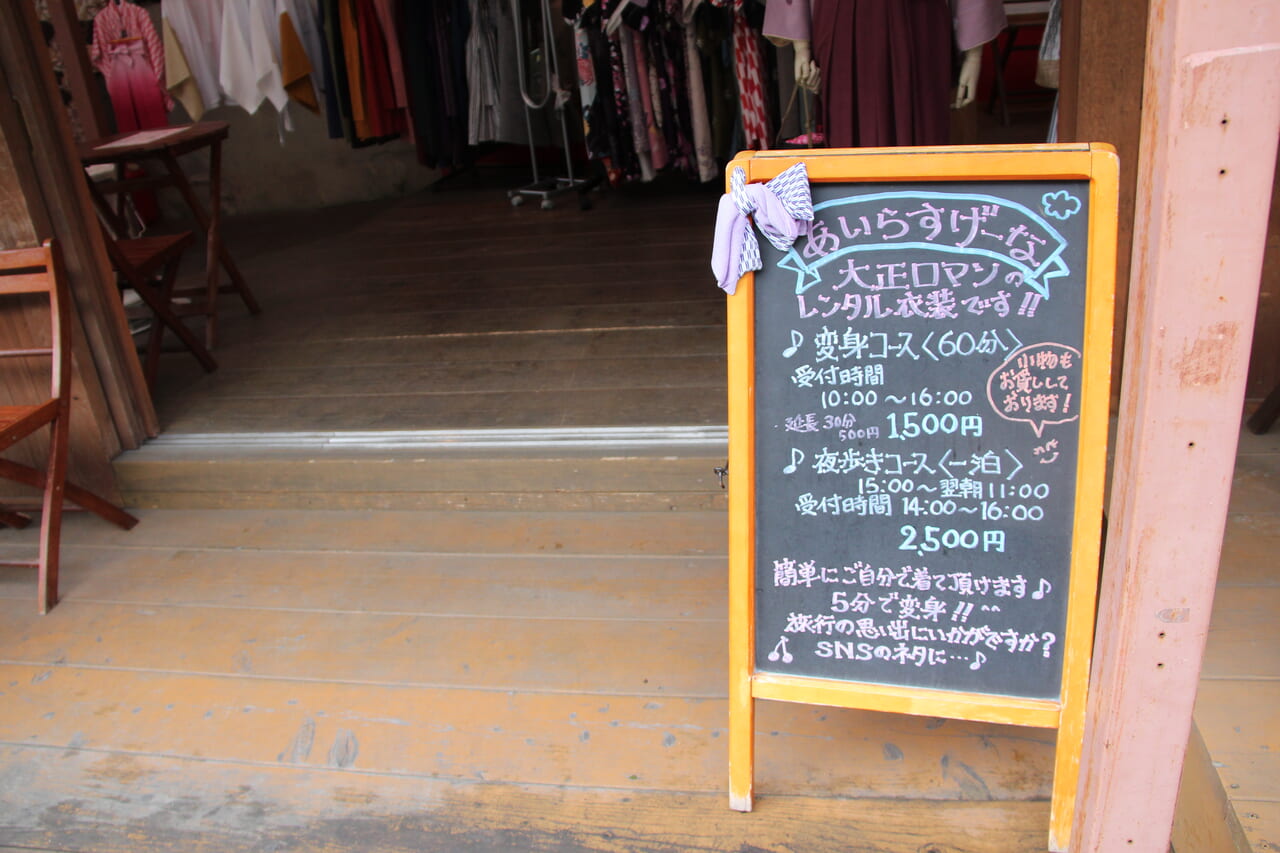 あいらすげーな
大正ロマンの
レンタル衣装です!!
♪変身コース〈60分〉
受付時間
10:00～16:00
延長30分
500円
1,500円
小物も
お貸しして
おります!
♪夜歩きコース〈一泊〉
15:00～翌朝11:00
受付時間 14:00～16:00
2,500円
簡単にご自分で着て頂けます♪
5分で変身!!^^
旅行の思い出にいかがですか?
SNSのネタに…♪